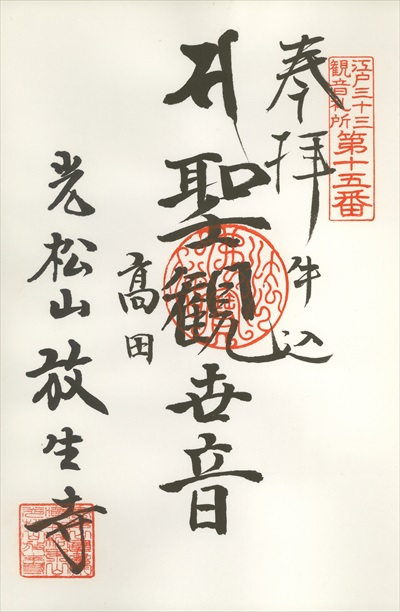 江戸三十三
観音札所
第十五番
奉拝
牛込
聖觀世音
高田
光松山放生寺